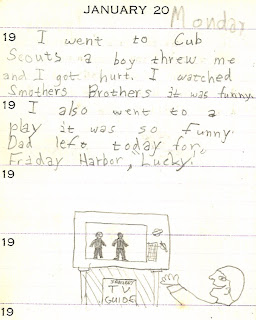 JANUARY 20 Monday
19 I went to Cub
Scouts a boy threw me
and I got hurt. I watched
Smothers Brothers it was funny.
19 I also went to a
play it was so funny.
Dad left today for
Fraday Harbor, Lucky!
19
19
TV
GUIDE
19